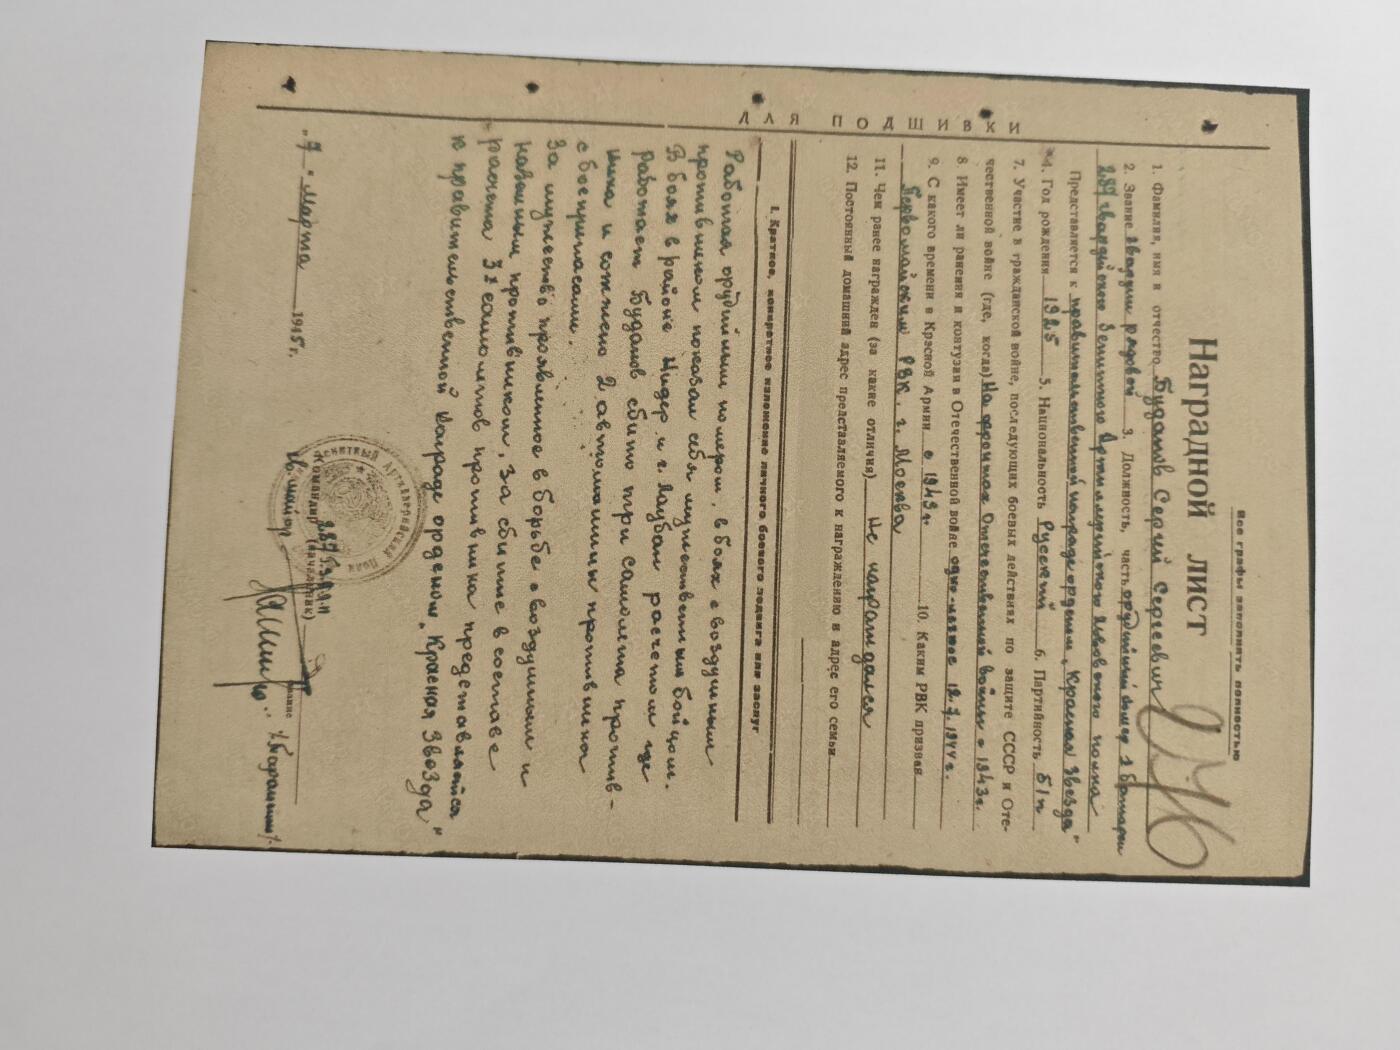 Все графы заполнять полностью
Наградной лист
1. Фамилия, имя и отчество Буданов Сергей Сергеевич
2. Звание гвардии рядовой 3. Должность, часть орудийный номер 2 батареи
287 гвардейского Зенитного Артиллерийского Львовского полка
Представляется к правительственной награде орденом „Красная Звезда"
4. Год рождения 1925 5. Национальность Русский 6. Партийность б/п
7. Участие в гражданской войне, последующих боевых действиях по защите СССР и Оте-
чественной войне (где, когда) На фронтах Отечественной войны с 1943 г.
8. Имеет ли ранения и контузии в Отечественной войне 1944 г.
9. С какого времени в Красной Армии с 1943 г. 10. Каким РВК призван
Первомайским РВК, г. Москва
11. Чем ранее награжден (за какие отличия) Не награждался
12. Постоянный домашний адрес представляемого к награждению и адрес его семьи
I. Краткое, конкретное изложение личного боевого подвига или заслуг
Работая орудийным номером, в боях с воздушным
противником показал себя мужественным бойцом.
В боях в районе Нидер и г. Лаубан расчетом где
работает Буданов сбито три самолета против-
ника и сожжено 2 автомашины противника
с боеприпасами.
За мужество проявленное в борьбе с воздушным и
наземным противником, за сбитые в составе
расчета 3х самолетов противника представляется
к правительственной награде орденом „Красная Звезда"
Командир (начальник)
287 Гв. ЗАП
Гв. майор /Барашин/
звание
Зенитный Артиллерийский Полк
„7" Марта 1945 г.
ДЛЯ ПОДШИВКИ